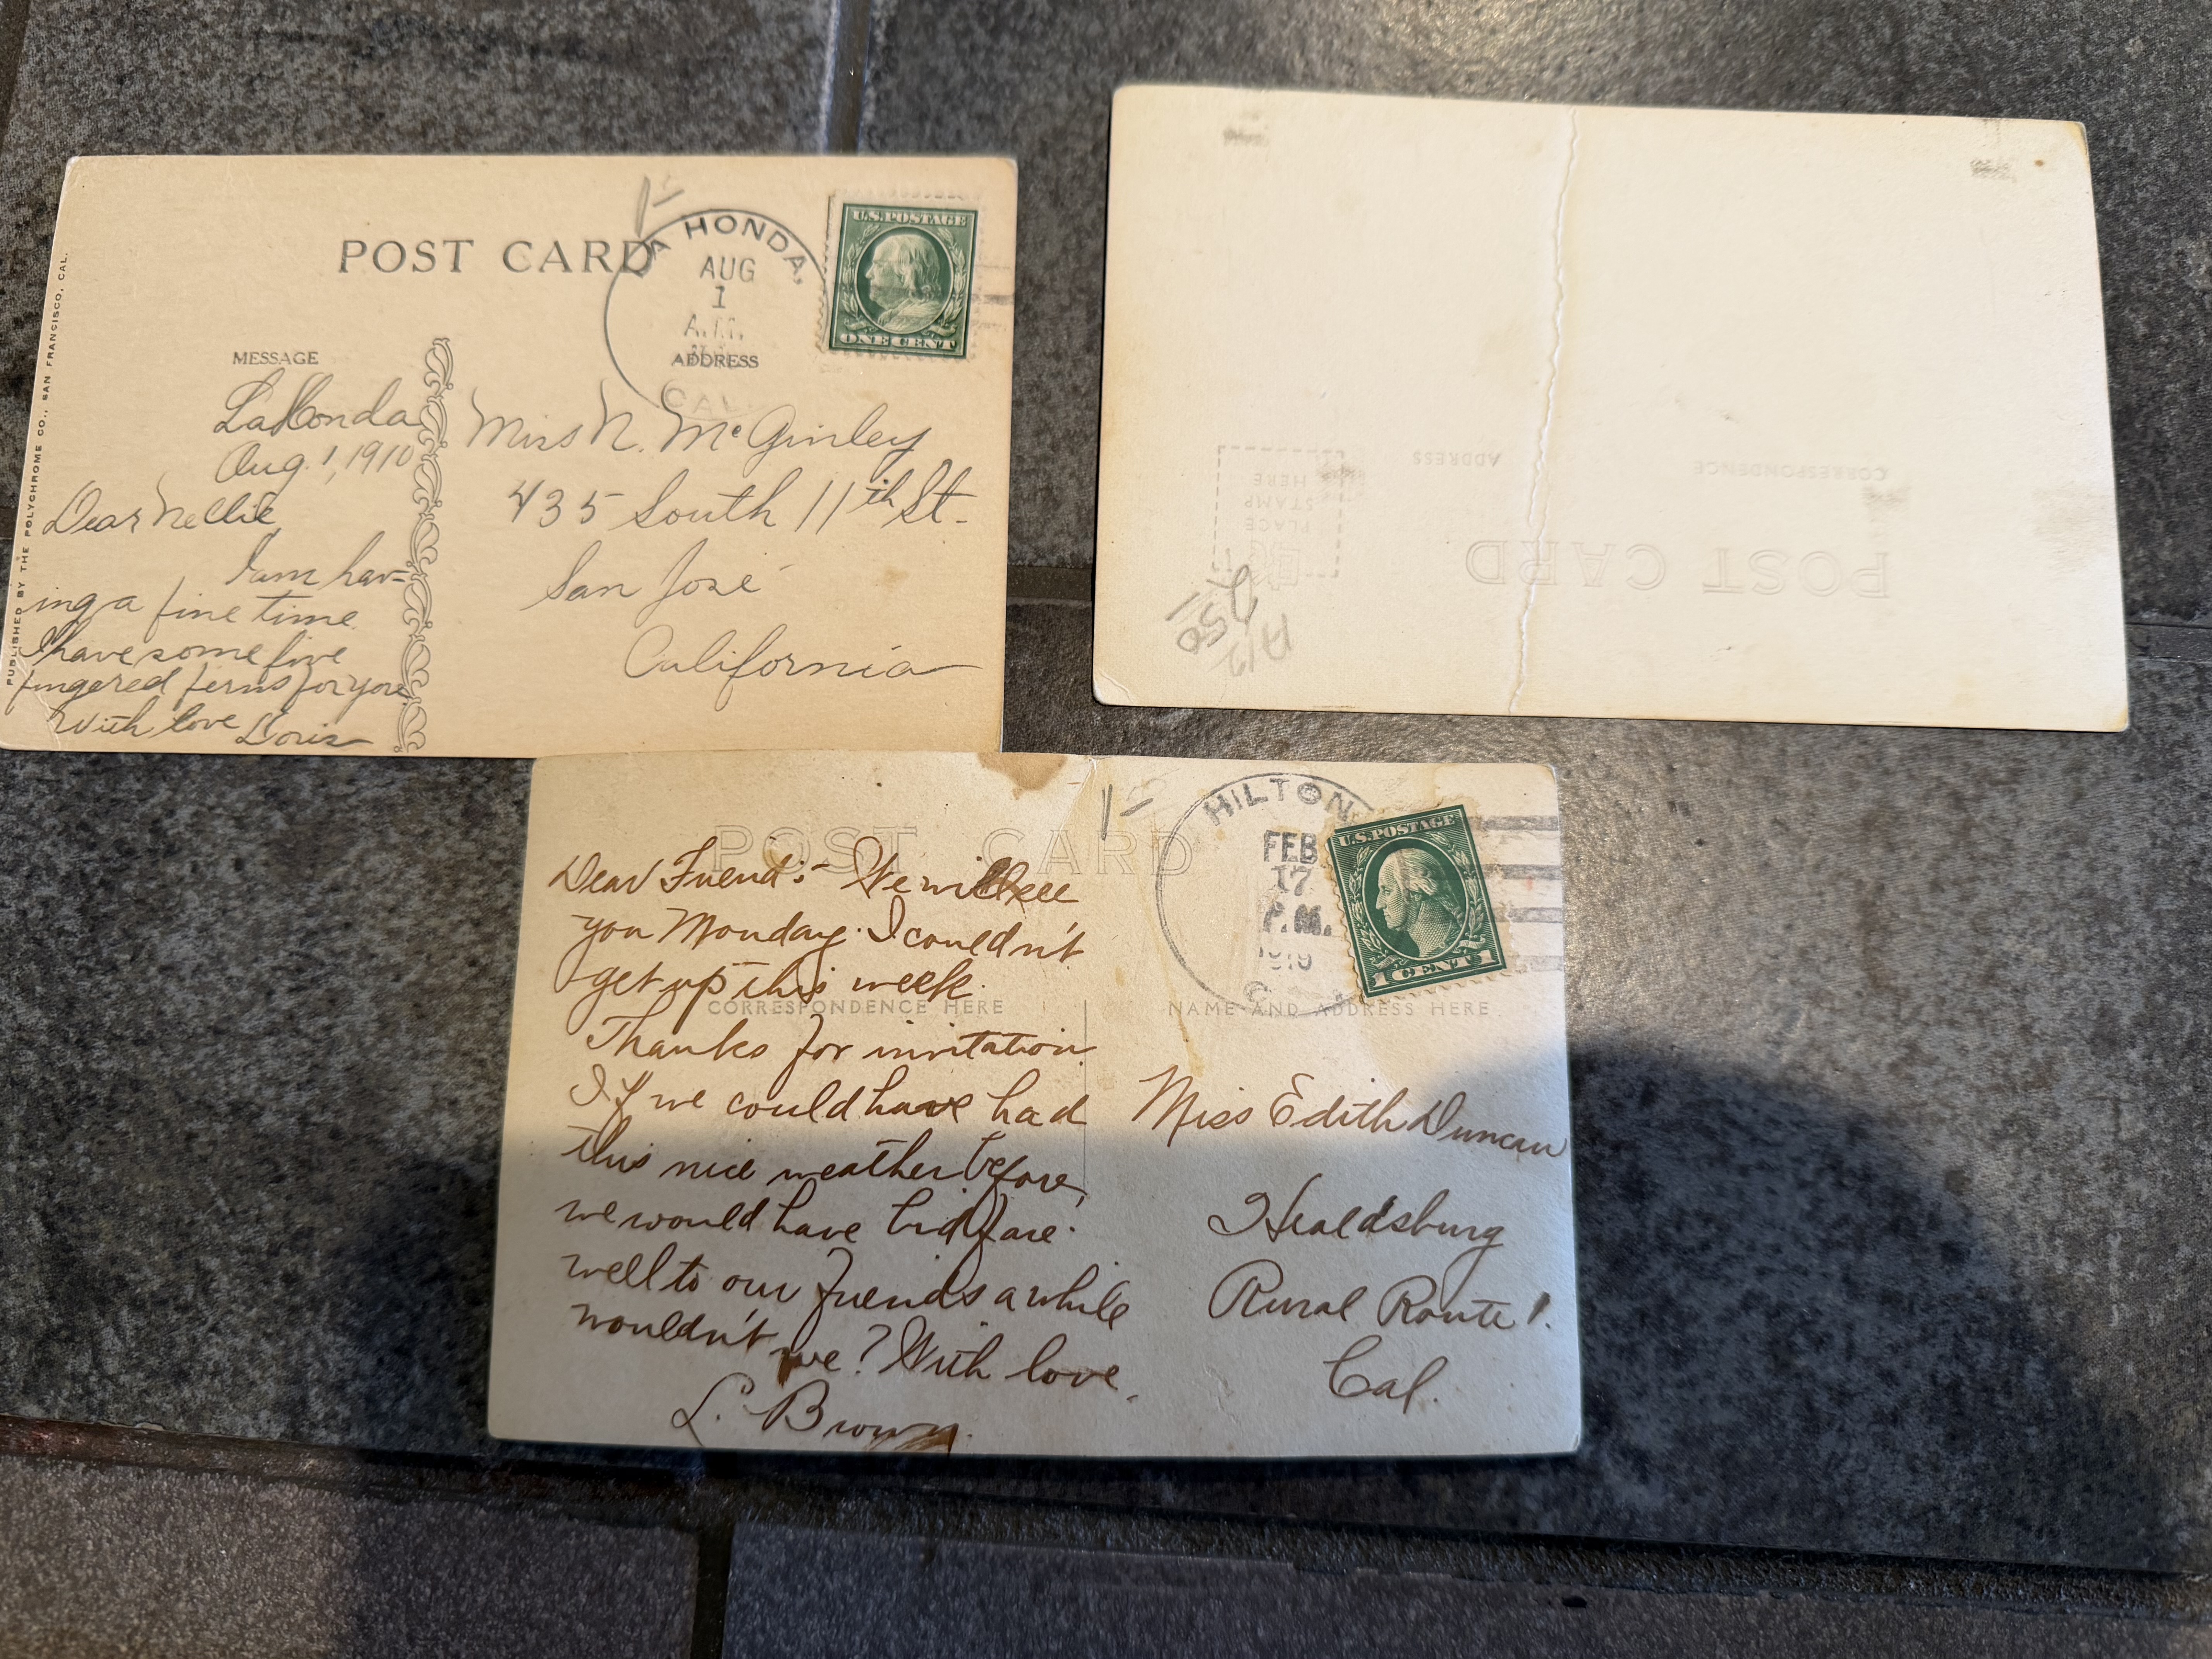 POST CARD
LA HONDA,
AUG
1
A.M.
CAL
U.S.POSTAGE
ONE CENT
MESSAGE
ADDRESS
PUBLISHED BY THE POLYCHROME CO., SAN FRANCISCO, CAL.
LaHonda
Aug. 1, 1910
Dear Nellie
I am hav-
ing a fine time
I have some five
fingered ferns for you
With love Doris
Miss N. McGinley
435 South 11th St.
San José
California
POST CARD
CORRESPONDENCE
ADDRESS
PLACE
STAMP
HERE
250
POST CARD
HILTON
FEB
17
P.M.
U.S.POSTAGE
1 CENT 1
CORRESPONDENCE HERE
NAME AND ADDRESS HERE
Dear Friend:- We will see
you Monday. I couldn't
get up this week.
Thanks for invitation.
If we could have had
this nice weather before,
we would have bid fare-
well to our friends a while
wouldn't we? With love,
L. Brown.
Miss Edith Duncan
Healdsburg
Rural Route 1.
Cal.